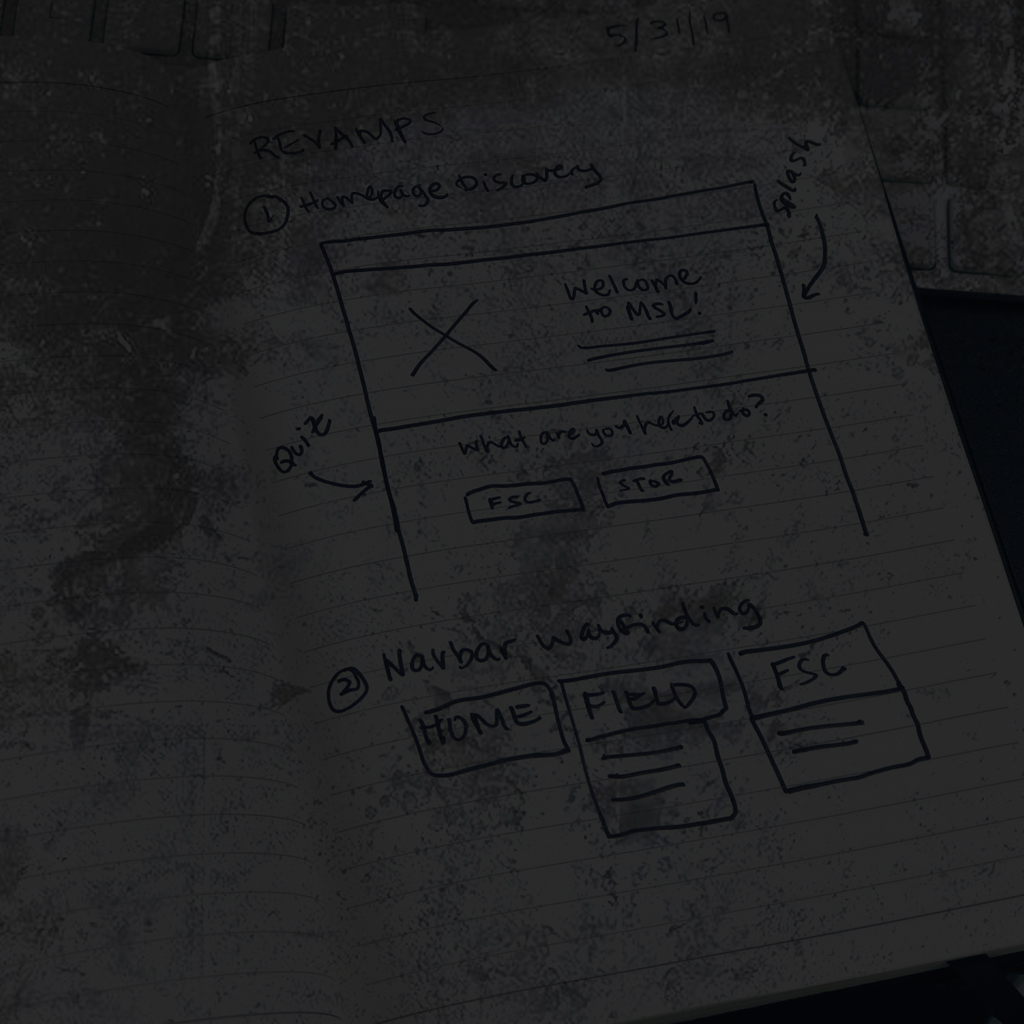 5/31/19
REVAMPS
① Homepage Discovery
splash
Welcome
to MSL!
Quiz
What are you here to do?
FSC
STOR
② Navbar wayfinding
HOME
FIELD
FSC